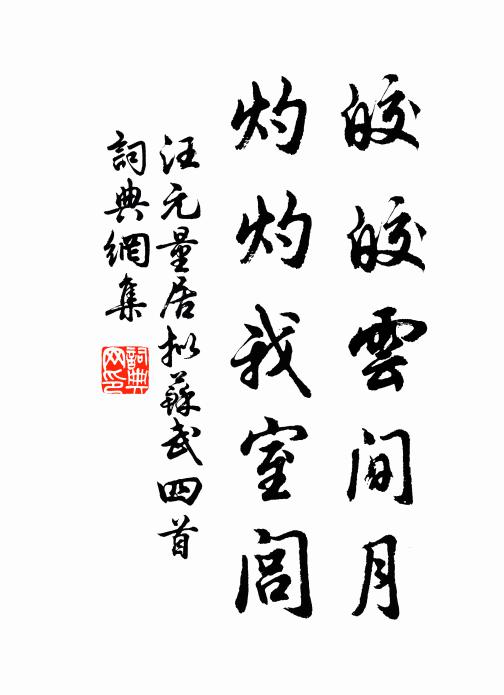 皎皎雲間月
灼灼我室閭
汪元量居拟蘇武四首
詞典網集
詞典
网印